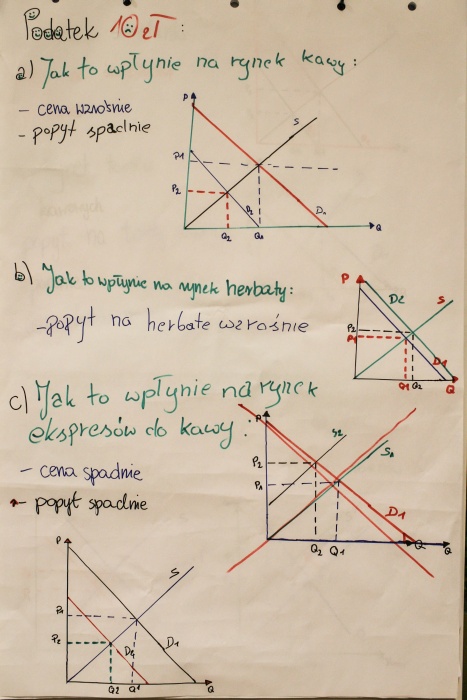 Podatek 10 zł :
a) Jak to wpłynie na rynek kawy :
- cena wzrośnie
- popyt spadnie
P
S
P1
P2
D2
D1
Q2 Q1
Q
b) Jak to wpłynie na rynek herbaty:
- popyt na herbate wzrośnie
P
D2
S
P2
P1
D1
Q1 Q2
Q
c) Jak to wpłynie na rynek
ekspresów do kawy :
- cena spadnie
- popyt spadnie
P
S2
S1
P2
P1
D1
Q2 Q1
Q
Q
P
S
P1
P2
D2
D1
Q2 Q1
Q